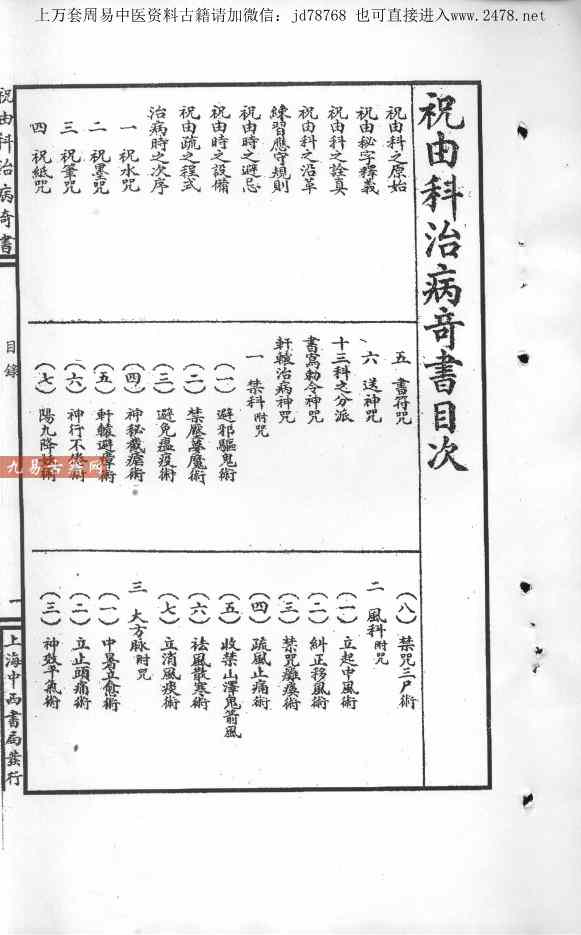 上万套周易中医资料古籍请加微信：jd78768 也可直接进入www.2478.net
祝由科治病奇書目次
祝由科之原始
祝由秘字釋義
祝由科之詮真
祝由科之沿革
練習應守規則
祝由時之避忌
祝由時之設備
祝由疏之程式
治病時之次序
一 祝水咒
二 祝墨咒
三 祝筆咒
四 祝紙咒
五 書符咒
六 送神咒
十三科之分派
書寫勅令神咒
軒轅治病神咒
一 禁科附咒
（一）避邪驅鬼術
（二）禁壓夢魔術
（三）避免瘟疫術
（四）神秘截瘧術
（五）軒轅避瘴術
（六）神行不倦術
（七）陽九降術
（八）禁咒三尸術
二 風科附咒
（一）立起中風術
（二）糾正移風術
（三）禁咒癱瘓術
（四）疏風止痛術
（五）收禁山澤鬼箭風
（六）祛風散寒術
（七）立消風痰術
三 大方脉附咒
（一）中暑立愈術
（二）立止頭痛術
（三）神效平氣術
祝由科治病奇書
目錄
一
上海中西書局發行
九易古籍网